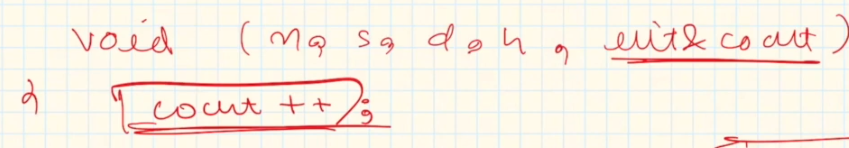 void (n, s, d, h, int& count)
{ count ++;